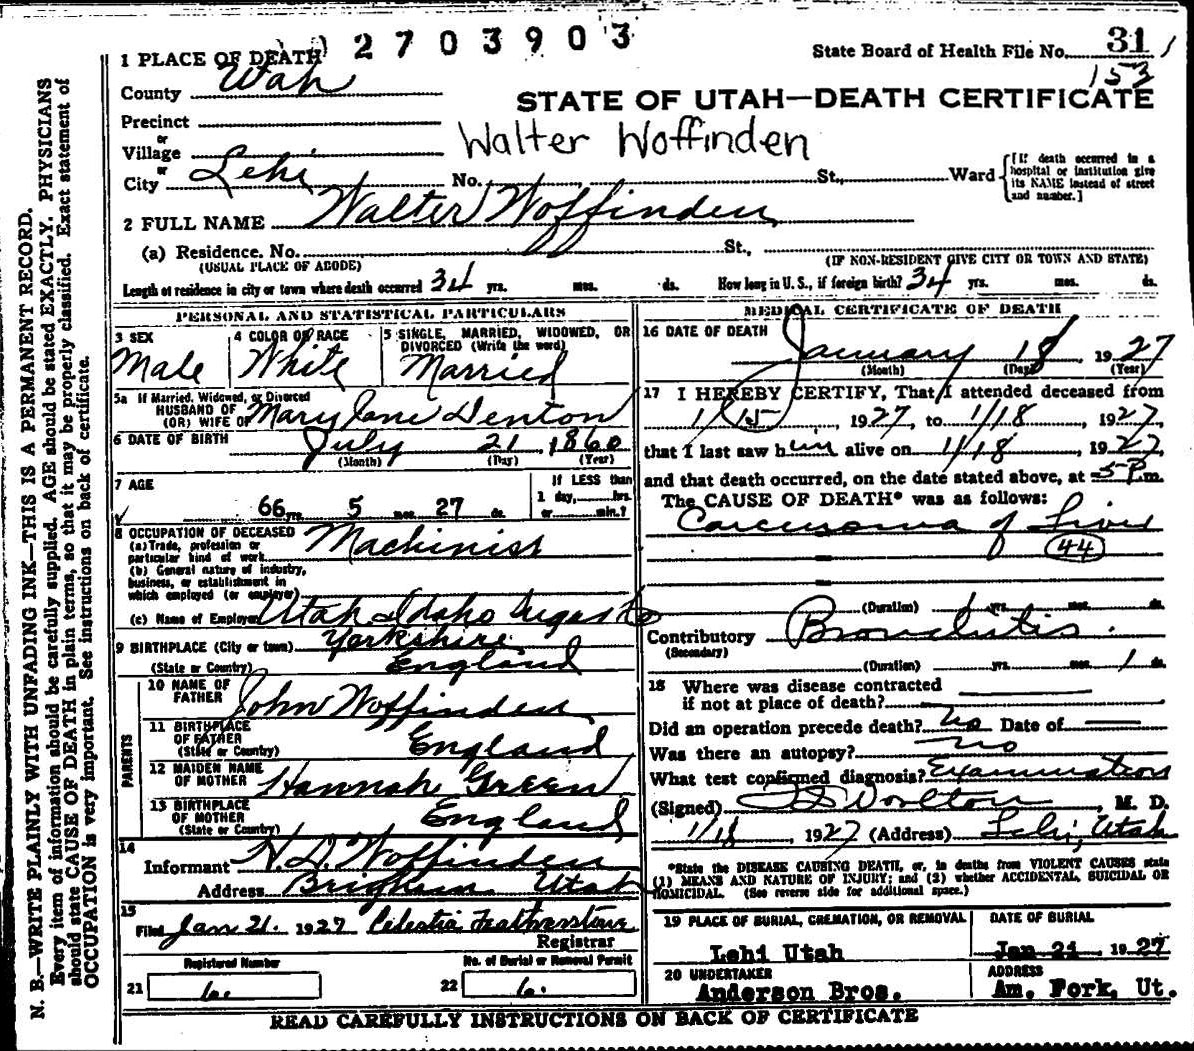 2703903
1 PLACE OF DEATH
State Board of Health File No. 31
153
County Utah
STATE OF UTAH—DEATH CERTIFICATE
Precinct
or
Village
Walter Woffinden
or
City Lehi No. St., Ward
[If death occurred in a hospital or institution give its NAME instead of street and number.]
2 FULL NAME Walter Woffinden
(a) Residence. No. St.,
(USUAL PLACE OF ABODE) (IF NON-RESIDENT GIVE CITY OR TOWN AND STATE)
Length of residence in city or town where death occurred 34 yrs. mos. ds. How long in U. S., if foreign birth? 34 yrs. mos. ds.
PERSONAL AND STATISTICAL PARTICULARS
3 SEX
Male
4 COLOR OR RACE
White
5 SINGLE, MARRIED, WIDOWED, OR
DIVORCED (Write the word)
Married
5a If Married, Widowed, or Divorced
HUSBAND OF
(OR) WIFE OF Mary Jane Denton
6 DATE OF BIRTH July 21, 1860
(Month) (Day) (Year)
7 AGE
66 yrs. 5 mos. 27 ds.
If LESS than
1 day, hrs.
or min.?
8 OCCUPATION OF DECEASED
(a) Trade, profession or
particular kind of work Machinist
(b) General nature of industry,
business, or establishment in
which employed (or employer)
(c) Name of Employer Utah Idaho Sugar Co
9 BIRTHPLACE (City or town) Yorkshire
(State or Country) England
PARENTS
10 NAME OF
FATHER John Woffinden
11 BIRTHPLACE
OF FATHER
(State or Country) England
12 MAIDEN NAME
OF MOTHER Hannah Green
13 BIRTHPLACE
OF MOTHER
(State or Country) England
14
Informant H. D. Woffinden
Address Brigham Utah
15
Filed Jan 21. 1927 Celestia Featherstone
Registrar
Registered Number
21 6.
No. of Burial or Removal Permit
22 6.
MEDICAL CERTIFICATE OF DEATH
16 DATE OF DEATH
January 18, 1927
(Month) (Day) (Year)
17 I HEREBY CERTIFY, That I attended deceased from
1/15, 1927, to 1/18, 1927,
that I last saw him alive on 1/18, 1927,
and that death occurred, on the date stated above, at 5 P.m.
The CAUSE OF DEATH* was as follows:
Carcinoma of Liver
44
(Duration) 1 yrs. mos. ds.
Contributory Bronchitis.
(Secondary)
(Duration) yrs. mos. 1 ds.
18 Where was disease contracted
if not at place of death?
Did an operation precede death? no Date of
Was there an autopsy? no
What test confirmed diagnosis? Examination
(Signed) Worlton, M. D.
1/18, 1927 (Address) Lehi, Utah
*State the DISEASE CAUSING DEATH, or, in deaths from VIOLENT CAUSES state
(1) MEANS AND NATURE OF INJURY; and (2) whether ACCIDENTAL, SUICIDAL OR
HOMICIDAL. (See reverse side for additional space.)
19 PLACE OF BURIAL, CREMATION, OR REMOVAL
Lehi Utah
DATE OF BURIAL
Jan 21, 1927
20 UNDERTAKER
Anderson Bros.
ADDRESS
Am. Fork, Ut.
READ CAREFULLY INSTRUCTIONS ON BACK OF CERTIFICATE
N. B.—WRITE PLAINLY WITH UNFADING INK—THIS IS A PERMANENT RECORD.
Every item of information should be carefully supplied. AGE should be stated EXACTLY. PHYSICIANS
should state CAUSE OF DEATH in plain terms, so that it may be properly classified. Exact statement of
OCCUPATION is very important. See instructions on back of certificate.